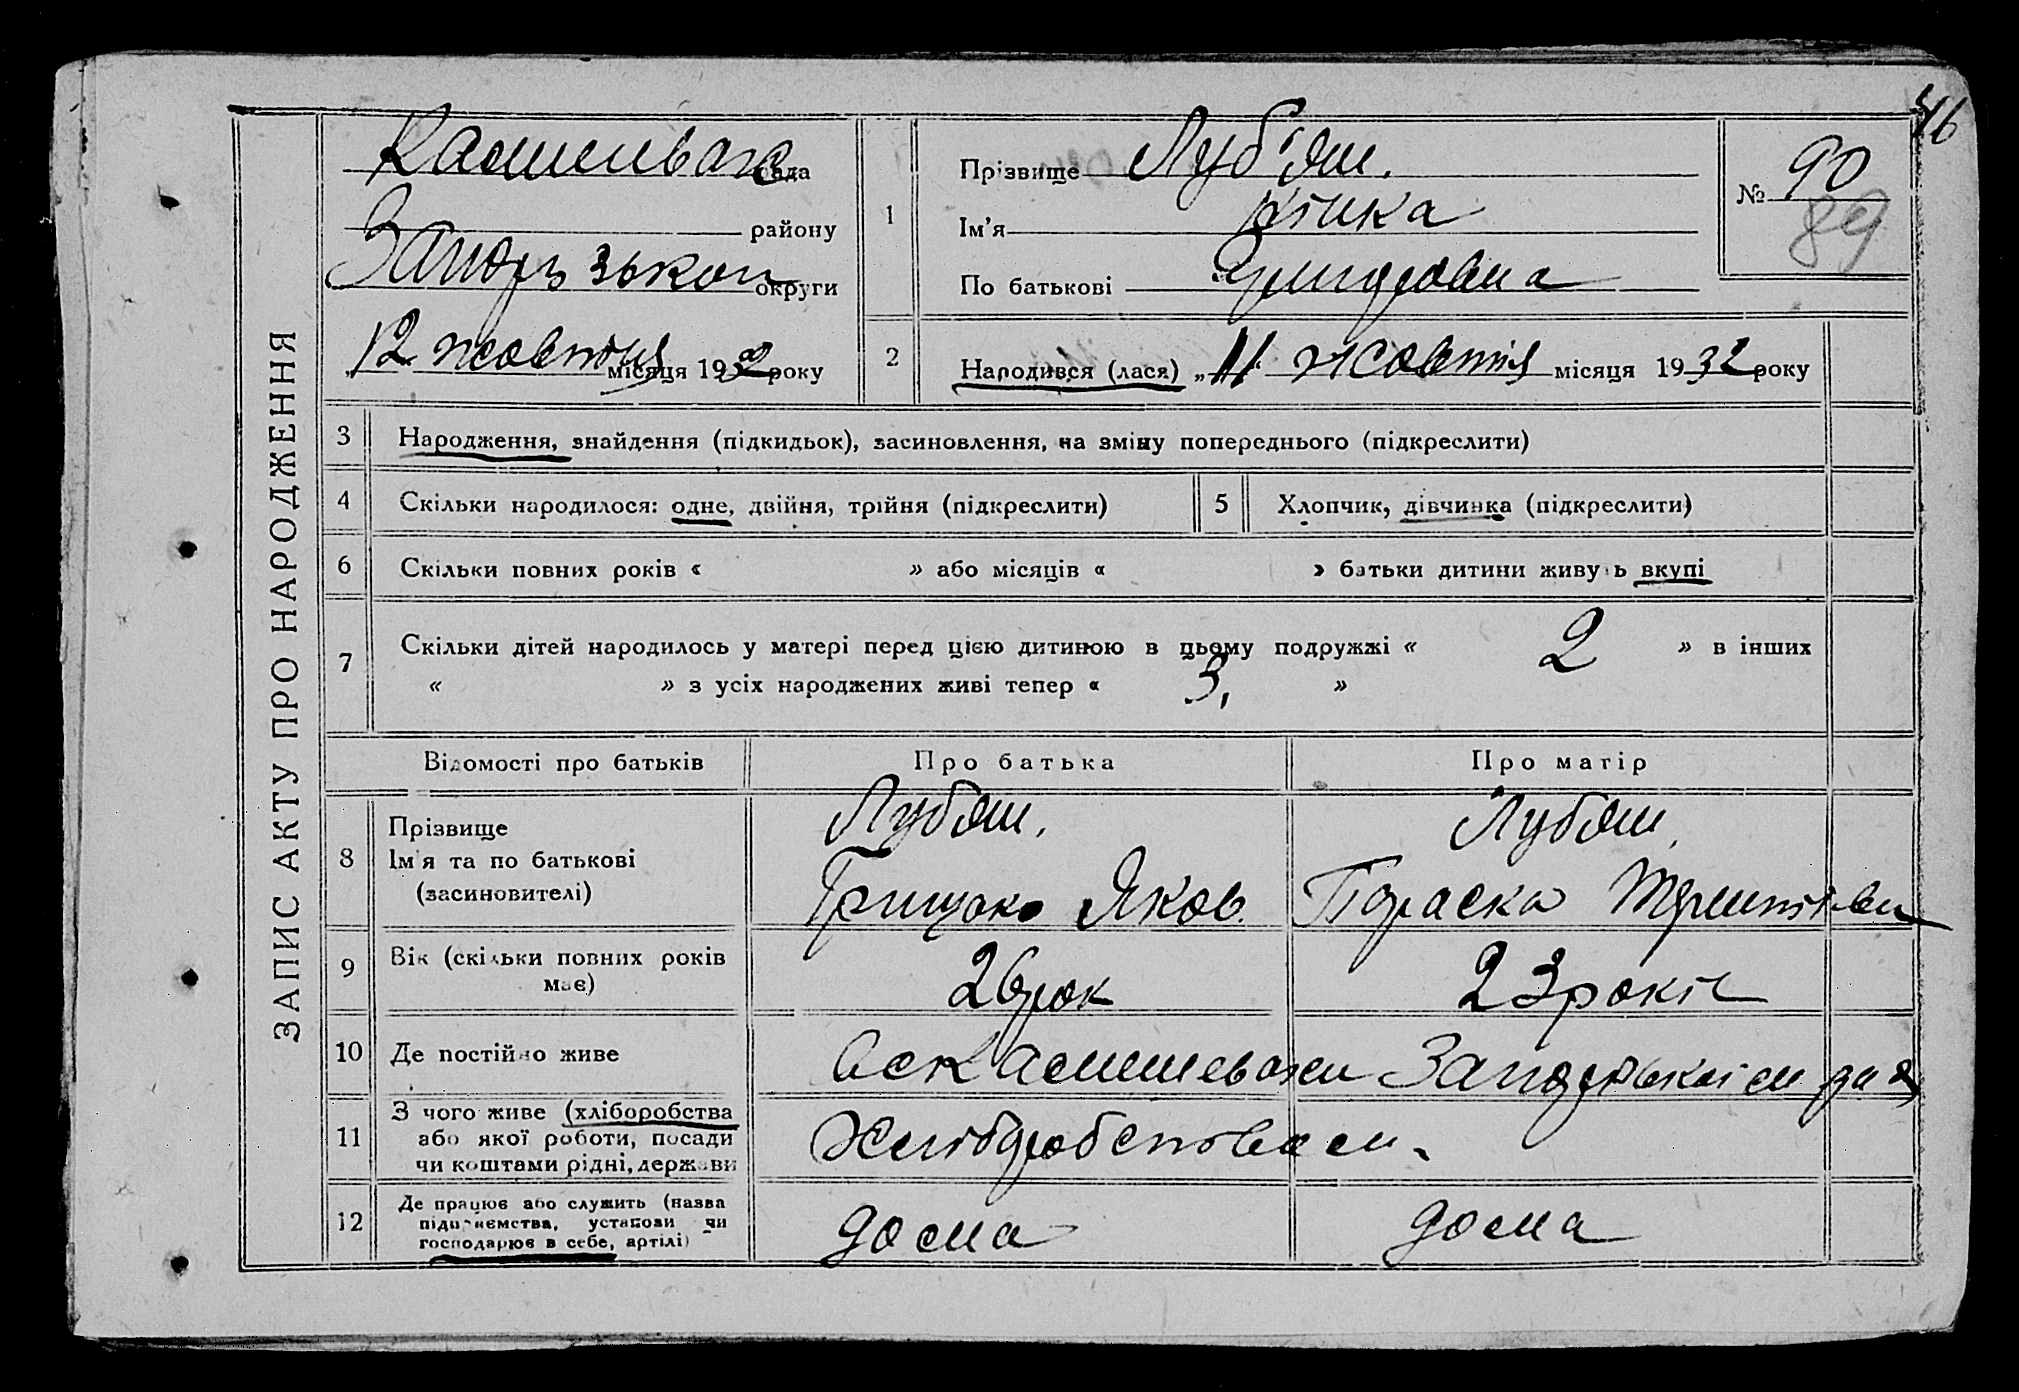 46
ЗАПИС АКТУ ПРО НАРОДЖЕННЯ
рада
району
округи
12 жовтня місяця 1932 року
1
Прізвище Луб'ян.
Ім'я
По батькові
№ 90
89
2
Народився (лася) „11" жовтня місяця 1932 року
3
Народження, знайдення (підкидьок), засиновлення, на зміну попереднього (підкреслити)
4
Скільки народилося: одне, двійня, трійня (підкреслити)
5
Хлопчик, дівчинка (підкреслити)
6
Скільки повних років « » або місяців « » батьки дитини живуть вкупі
7
Скільки дітей народилось у матері перед цією дитиною в цьому подружжі « 2 » в інших
« » з усіх народжених живі тепер « 3, »
Відомості про батьків
Про батька
Про матір
8
Прізвище
Ім'я та по батькові
(засиновителі)
Лубян.
Грицько Яков.
Лубян.
Параска
9
Вік (скільки повних років має)
26 рок
23 роки
10
Де постійно живе
11
З чого живе (хліборобства
або якої роботи, посади
чи коштами рідні, держави
Хліборобством.
12
Де працює або служить (назва
підприємства, установи чи
господарює в себе, артілі)
дома
дома